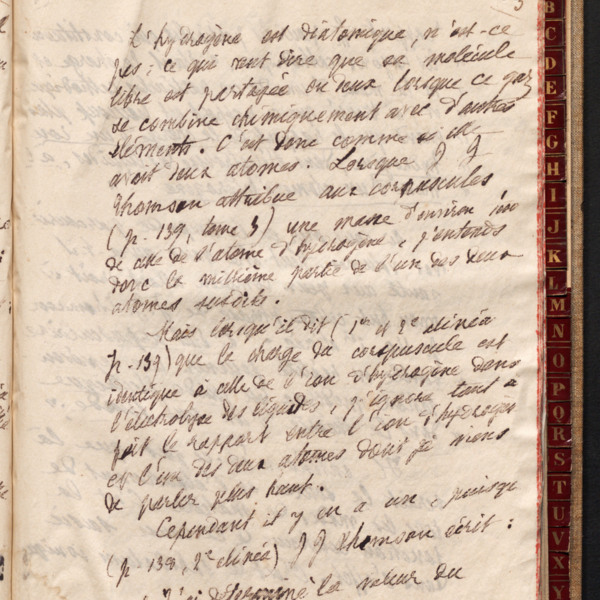 3
L'hydrogène est diatomique, n'est-ce
pas ; ce qui veut dire que sa molécule
libre est partagée en deux lorsque ce gaz
se combine chimiquement avec d'autres
éléments. C'est donc comme si elle
avait deux atomes. Lorsque J J
Thomson attribue aux corpuscules
(p. 139, tome 3) une masse d'environ
de celle de l'atome d'hydrogène, j'entends
donc la millième partie de l'un des deux
atomes susdits.
Mais lorsqu'il dit (1er et 2e alinéa
p. 139) que la charge du corpuscule est
identique à celle de l'ion d'hydrogène dans
l'électrolyse des liquides, j'ignore tout à
fait le rapport entre l'ion d'hydrogène
et l'un des deux atomes dont je viens
de parler plus haut.
Cependant il y en a un, puisque
(p. 138, 2e alinéa) J J Thomson écrit :
déterminé la valeur du
B
C
D
E
F
G
H
I
J
K
L
M
N
O
P
Q
R
S
T
U
V
X
Y